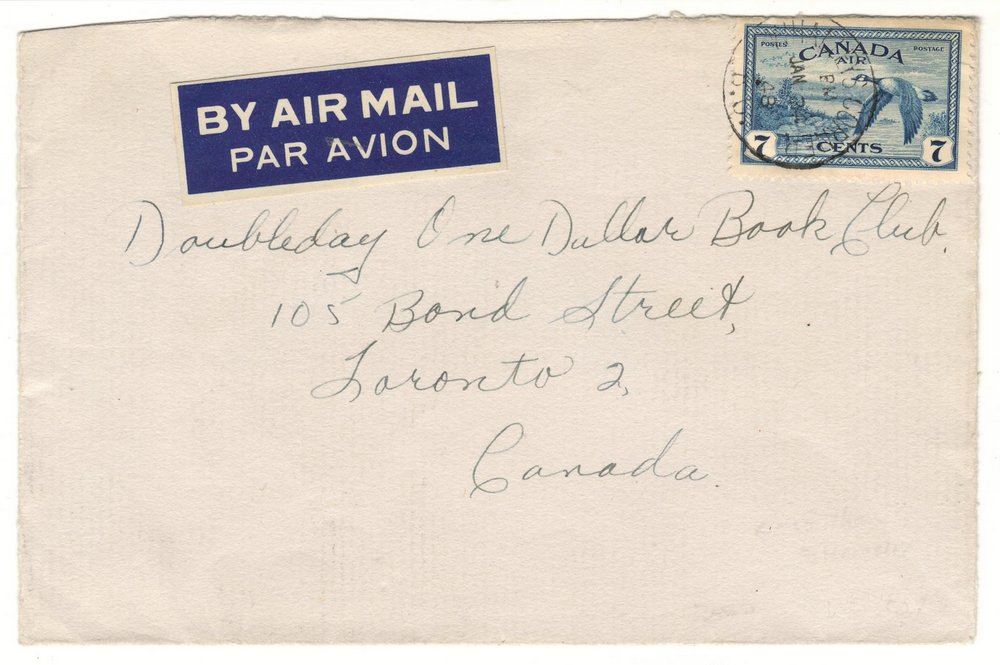 BY AIR MAIL
PAR AVION
POSTES CANADA POSTAGE
AIR
7 CENTS 7
JAN
48
B.C.
Doubleday One Dollar Book Club.
105 Bond Street,
Toronto 2,
Canada.